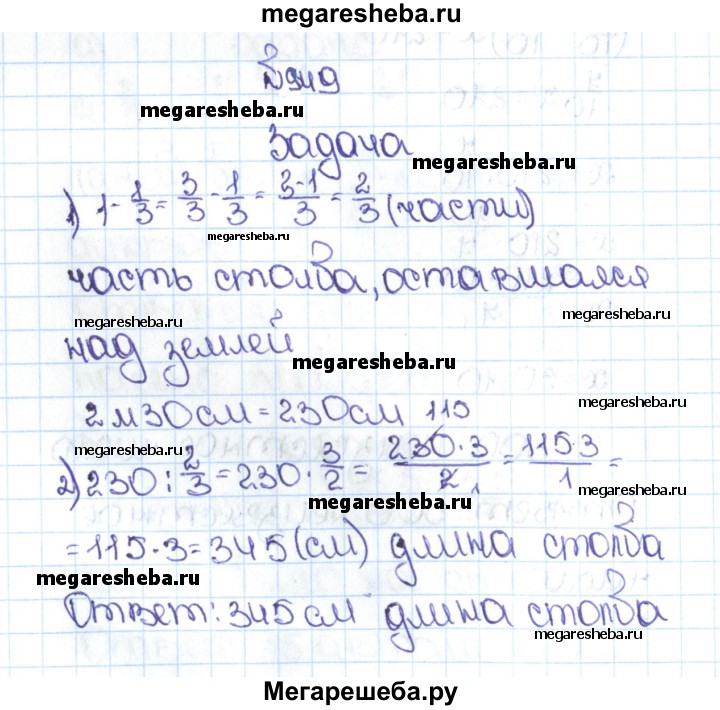 megaresheba.ru
№949
megaresheba.ru
Задача
megaresheba.ru
1) 1 - 1/3 = 3/3 - 1/3 = (3-1)/3 = 2/3 (части)
megaresheba.ru
часть столба, оставшаяся
megaresheba.ru megaresheba.ru
над землей
megaresheba.ru
megaresheba.ru
2 м 30 см = 230 см 115
megaresheba.ru
2) 230 : 2/3 = 230 · 3/2 = (230·3)/2 1 = (115·3)/1 =
megaresheba.ru megaresheba.ru
= 115·3 = 345 (см) длина столба
megaresheba.ru
Ответ: 345 см длина столба
megaresheba.ru
Мегарешеба.ру